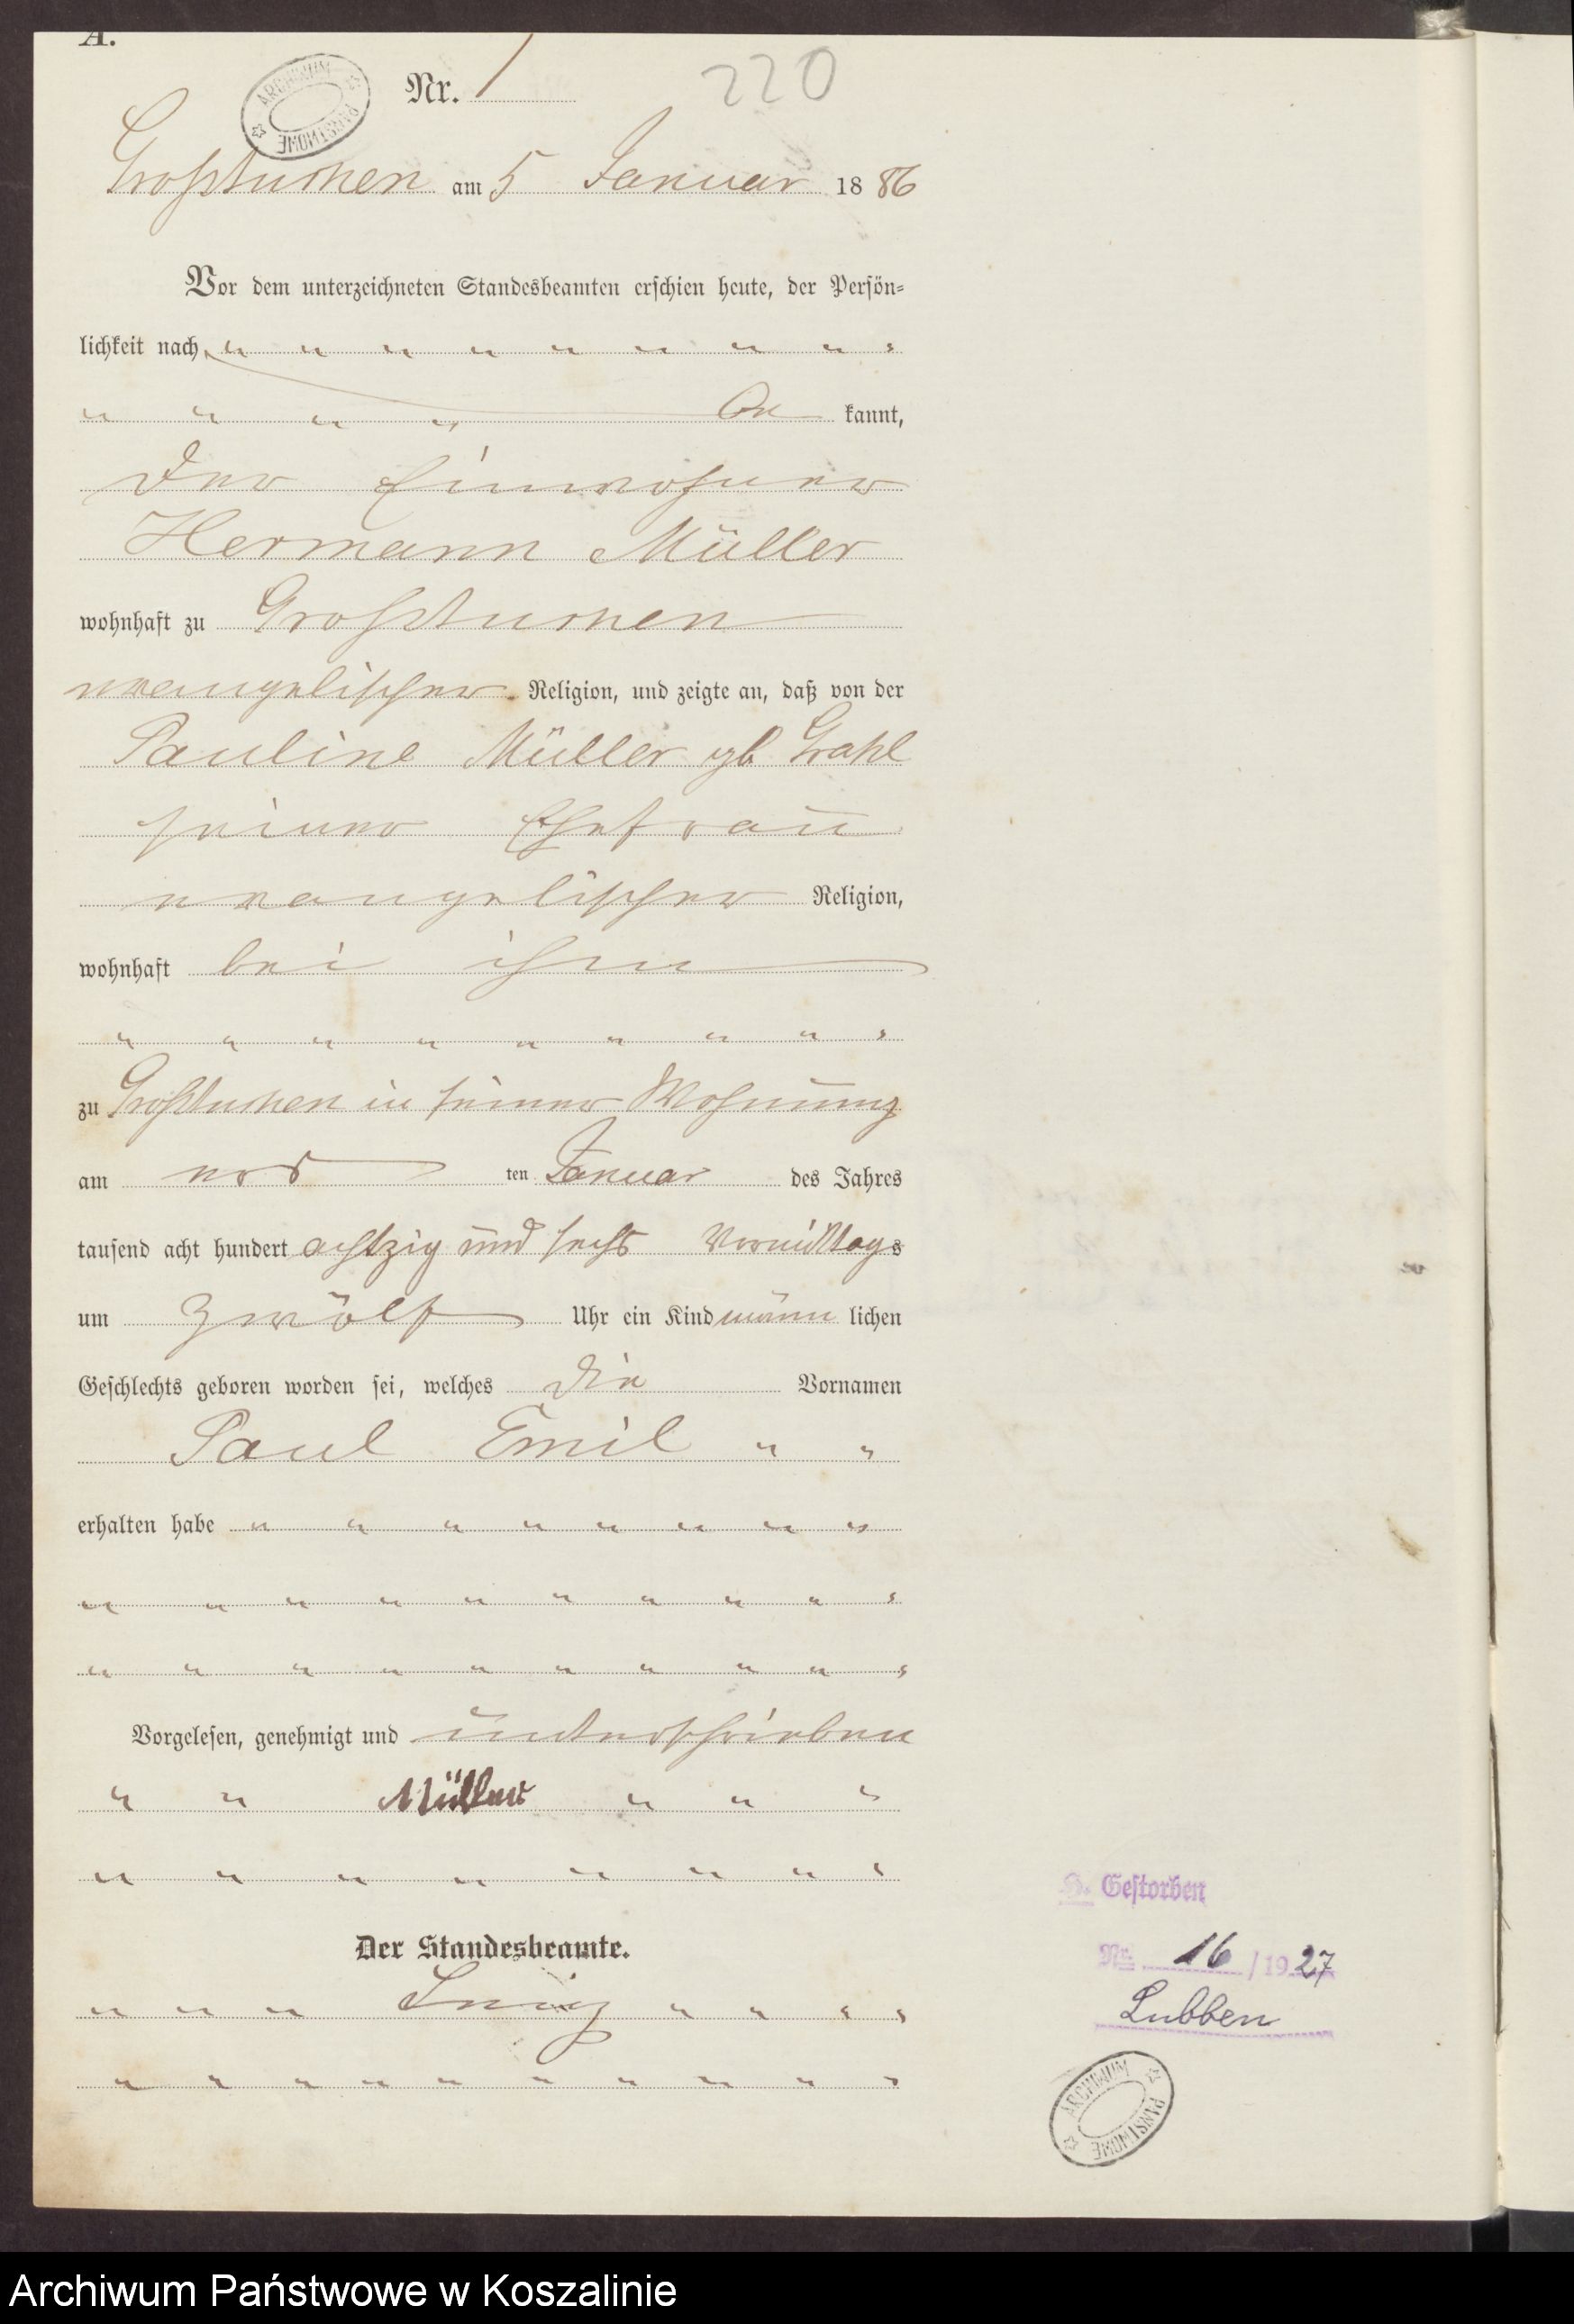 A.
ARCHIWUM PAŃSTWOWE
Nr. 1
220
Großtuchen am 5 Januar 1886
Vor dem unterzeichneten Standesbeamten erschien heute, der Persön-
lichkeit nach
be kannt,
der Einwohner
Hermann Müller
wohnhaft zu Großtuchen
evangelischer Religion, und zeigte an, daß von der
Pauline Müller gb Grahl
seiner Ehefrau
evangelischer Religion,
wohnhaft bei ihm
zu Großtuchen in seiner Wohnung
am ers ten Januar des Jahres
tausend acht hundert achtzig und sechs Vormittags
um zwölf Uhr ein Kind männ lichen
Geschlechts geboren worden sei, welches die Vornamen
Paul Emil
erhalten habe
Vorgelesen, genehmigt und unterschrieben
Müller
Der Standesbeamte.
H. Gestorben
Nr. 16 / 1927
Lubben
ARCHIWUM PAŃSTWOWE
Archiwum Państwowe w Koszalinie